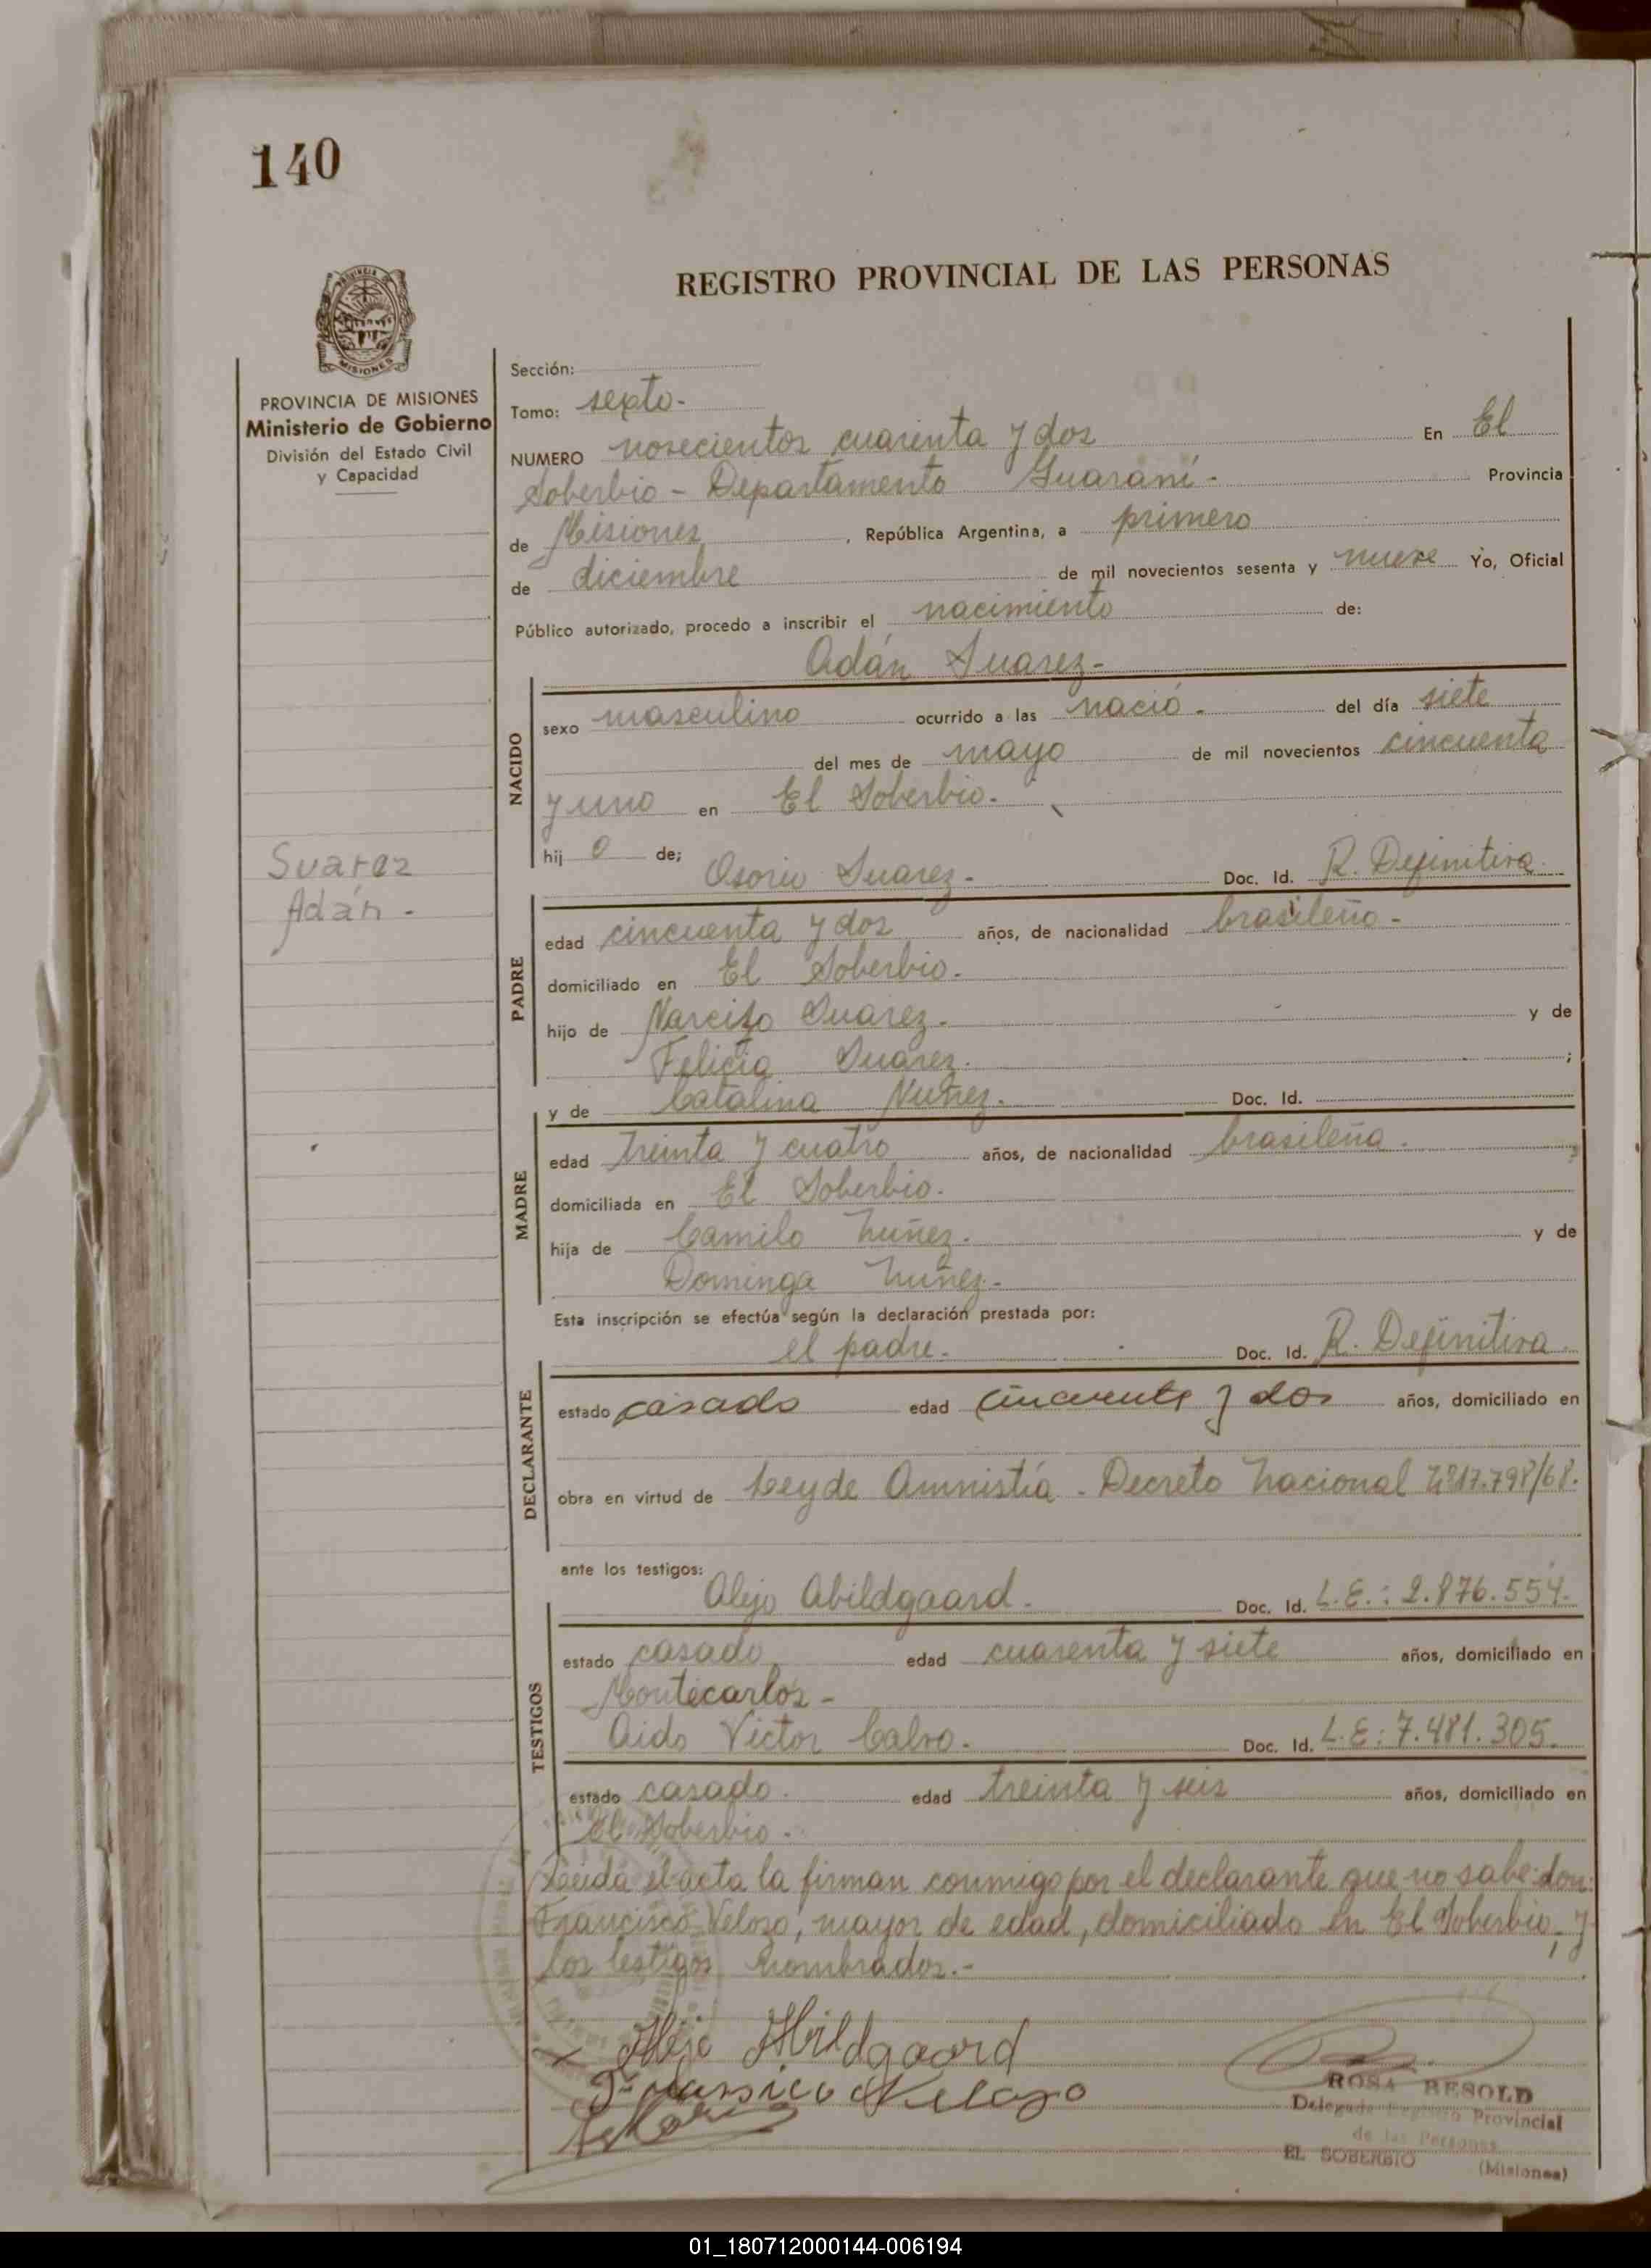 140
REGISTRO PROVINCIAL DE LAS PERSONAS
MISIONES
PROVINCIA DE MISIONES
Ministerio de Gobierno
División del Estado Civil
y Capacidad
Sección:
Tomo: sexto.-
NUMERO novecientos cuarenta y dos En El
Soberbio - Departamento Guaraní.- Provincia
de Misiones, República Argentina, a primero
de diciembre de mil novecientos sesenta y nueve Yo, Oficial
Público autorizado, procedo a inscribir el nacimiento de:
Adán Suarez.-
NACIDO
sexo masculino ocurrido a las nació.- del día siete
del mes de mayo de mil novecientos cincuenta
y uno en El Soberbio.-
hij o de;
Suarez
Adán.-
Osorio Suarez.- Doc. Id. R. Definitiva.
PADRE
edad cincuenta y dos años, de nacionalidad brasileño.-
domiciliado en El Soberbio.-
hijo de Narciso Suarez.- y de
Felicia Suarez.- ;
y de Catalina Nuñez.- Doc. Id.
MADRE
edad treinta y cuatro años, de nacionalidad brasileña.
domiciliada en El Soberbio.-
hija de Camilo Nuñez.- y de
Dominga Nuñez.-
Esta inscripción se efectúa según la declaración prestada por:
el padre.- Doc. Id. R. Definitiva.
DECLARANTE
estado casado edad cincuenta y dos años, domiciliado en
obra en virtud de Ley de Amnistía - Decreto Nacional Nº17.798/68.
ante los testigos:
Alejo Abildgaard.- Doc. Id. L.E.: 2.876.554.-
TESTIGOS
estado casado edad cuarenta y siete años, domiciliado en
Montecarlos -
Aido Victor Calvo.- Doc. Id. L.E: 7.481.305.
estado casado. edad treinta y seis años, domiciliado en
El Soberbio.-
Leída el acta la firman conmigo por el declarante que no sabe don:
Francisco Velozo, mayor de edad, domiciliado en El Soberbio, y
los testigos nombrados.-
Alejo Abildgaard
Velozo
ROSA BESOLD
Delegada Registro Provincial
de las Personas
EL SOBERBIO (Misiones)
01_180712000144-006194